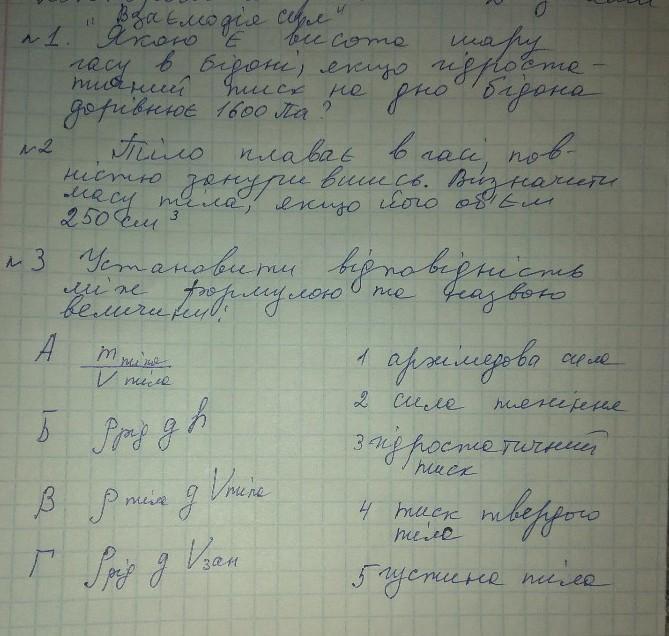 "Взаємодія сил"
№1. Якою є висота шару
гасу в бідоні, якщо гідроста-
тичний тиск на дно бідона
дорівнює 1600 Па?
№2 Тіло плаває в гасі, пов-
ністю занурившись. Визначити
масу тіла, якщо його об'єм
250 см³
№3 Установити відповідність
між формулою та назвою
величини:
А m тіла / V тіла
1 архімедова сила
2 сила тяжіння
Б ρрід g h
3 гідростатичний
тиск
В ρ тіла g V тіла
4 тиск твердого
тіла
Г ρрід g Vзан
5 густина тіла